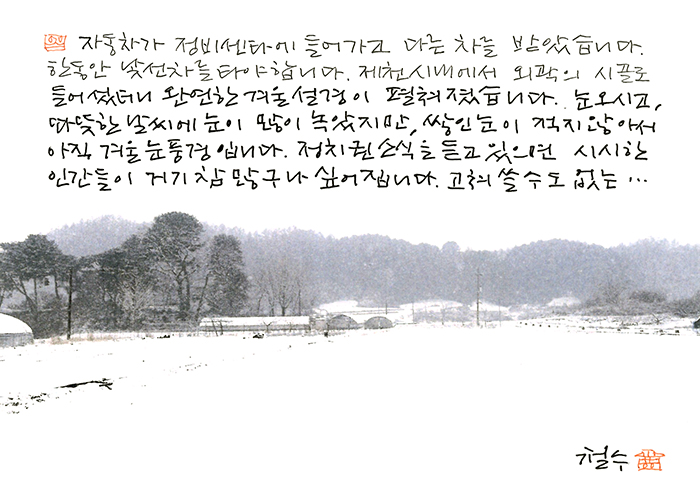 자동차가 정비센타에 들어가고 다른 차를 받았습니다.
한동안 낯선차를 타야합니다. 제천시내에서 외곽의 시골로
들어 섰더니 완연한 겨울설경이 펼쳐졌습니다. 눈오시고,
따뜻한 날씨에 눈이 많이 녹았지만, 쌓인 눈이 적지않아서
아직 겨울눈풍경입니다. 정치권소식을 듣고 있으면 시시한
인간들이 거기 참 많구나 싶어집니다. 고쳐 쓸 수도 없는 …
철수